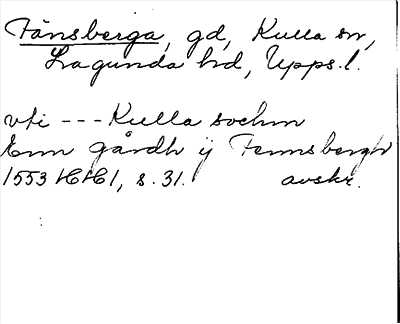 Fånsberga, gd, Kulla sn,
Lagunda hd, Upps. l.
vti --- Kulla sochnn
Enn gårdh ij Fennsbergh
1553 HH 1, s. 31. avskr.